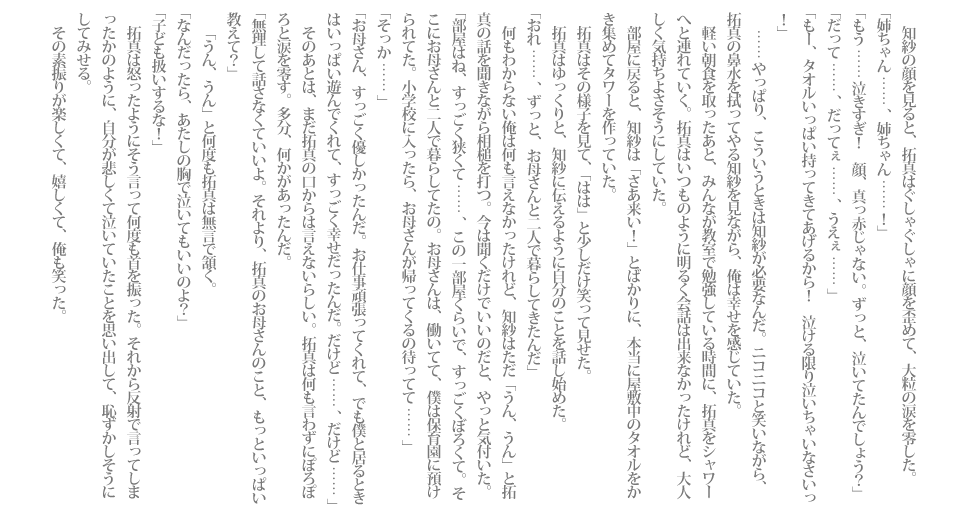 知紗の顔を見ると、拓真はぐしゃぐしゃに顔を歪めて、大粒の涙を零した。
「姉ちゃん……、姉ちゃん……！」
「もう……泣きすぎ！　顔、真っ赤じゃない。ずっと、泣いてたんでしょう？」
「だって……、だってぇ……、うえぇ……」
「もー、タオルいっぱい持ってきてあげるから！　泣ける限り泣いちゃいなさいっ
！」
　……やっぱり、こういうときは知紗が必要なんだ。ニコニコと笑いながら、
拓真の鼻水を拭ってやる知紗を見ながら、俺は幸せを感じていた。
　軽い朝食を取ったあと、みんなが教室で勉強している時間に、拓真をシャワー
へと連れていく。拓真はいつものように明るく会話は出来なかったけれど、大人
しく気持ちよさそうにしていた。
　部屋に戻ると、知紗は「さあ来い！」とばかりに、本当に屋敷中のタオルをか
き集めてタワーを作っていた。
　拓真はその様子を見て、「はは」と少しだけ笑って見せた。
　拓真はゆっくりと、知紗に伝えるように自分のことを話し始めた。
「おれ……、ずっと、お母さんと二人で暮らしてきたんだ」
　何もわからない俺は何も言えなかったけれど、知紗はただ「うん、うん」と拓
真の話を聞きながら相槌を打つ。今は聞くだけでいいのだと、やっと気付いた。
「部屋はね、すっごく狭くて……、この一部屋くらいで、すっごくぼろくて。そ
こにお母さんと二人で暮らしてたの。お母さんは、働いてて、僕は保育園に預け
られてた。小学校に入ったら、お母さんが帰ってくるの待ってて……」
「そっか……」
「お母さん、すっごく優しかったんだ。お仕事頑張ってくれて、でも僕と居るとき
はいっぱい遊んでくれて、すっごく幸せだったんだ。だけど……、だけど……」
　そのあとは、まだ拓真の口からは言えないらしい。拓真は何も言わずにぽろぽ
ろと涙を零す。多分、何かがあったんだ。
「無理して話さなくていいよ。それより、拓真のお母さんのこと、もっといっぱい
教えて？」
　「うん、うん」と何度も拓真は無言で頷く。
「なんだったら、あたしの胸で泣いてもいいのよ？」
「子ども扱いするな！」
　拓真は怒ったようにそう言って何度も首を振った。それから反射で言ってしま
ったかのように、自分が悲しくて泣いていたことを思い出して、恥ずかしそうに
してみせる。
　その素振りが楽しくて、嬉しくて、俺も笑った。